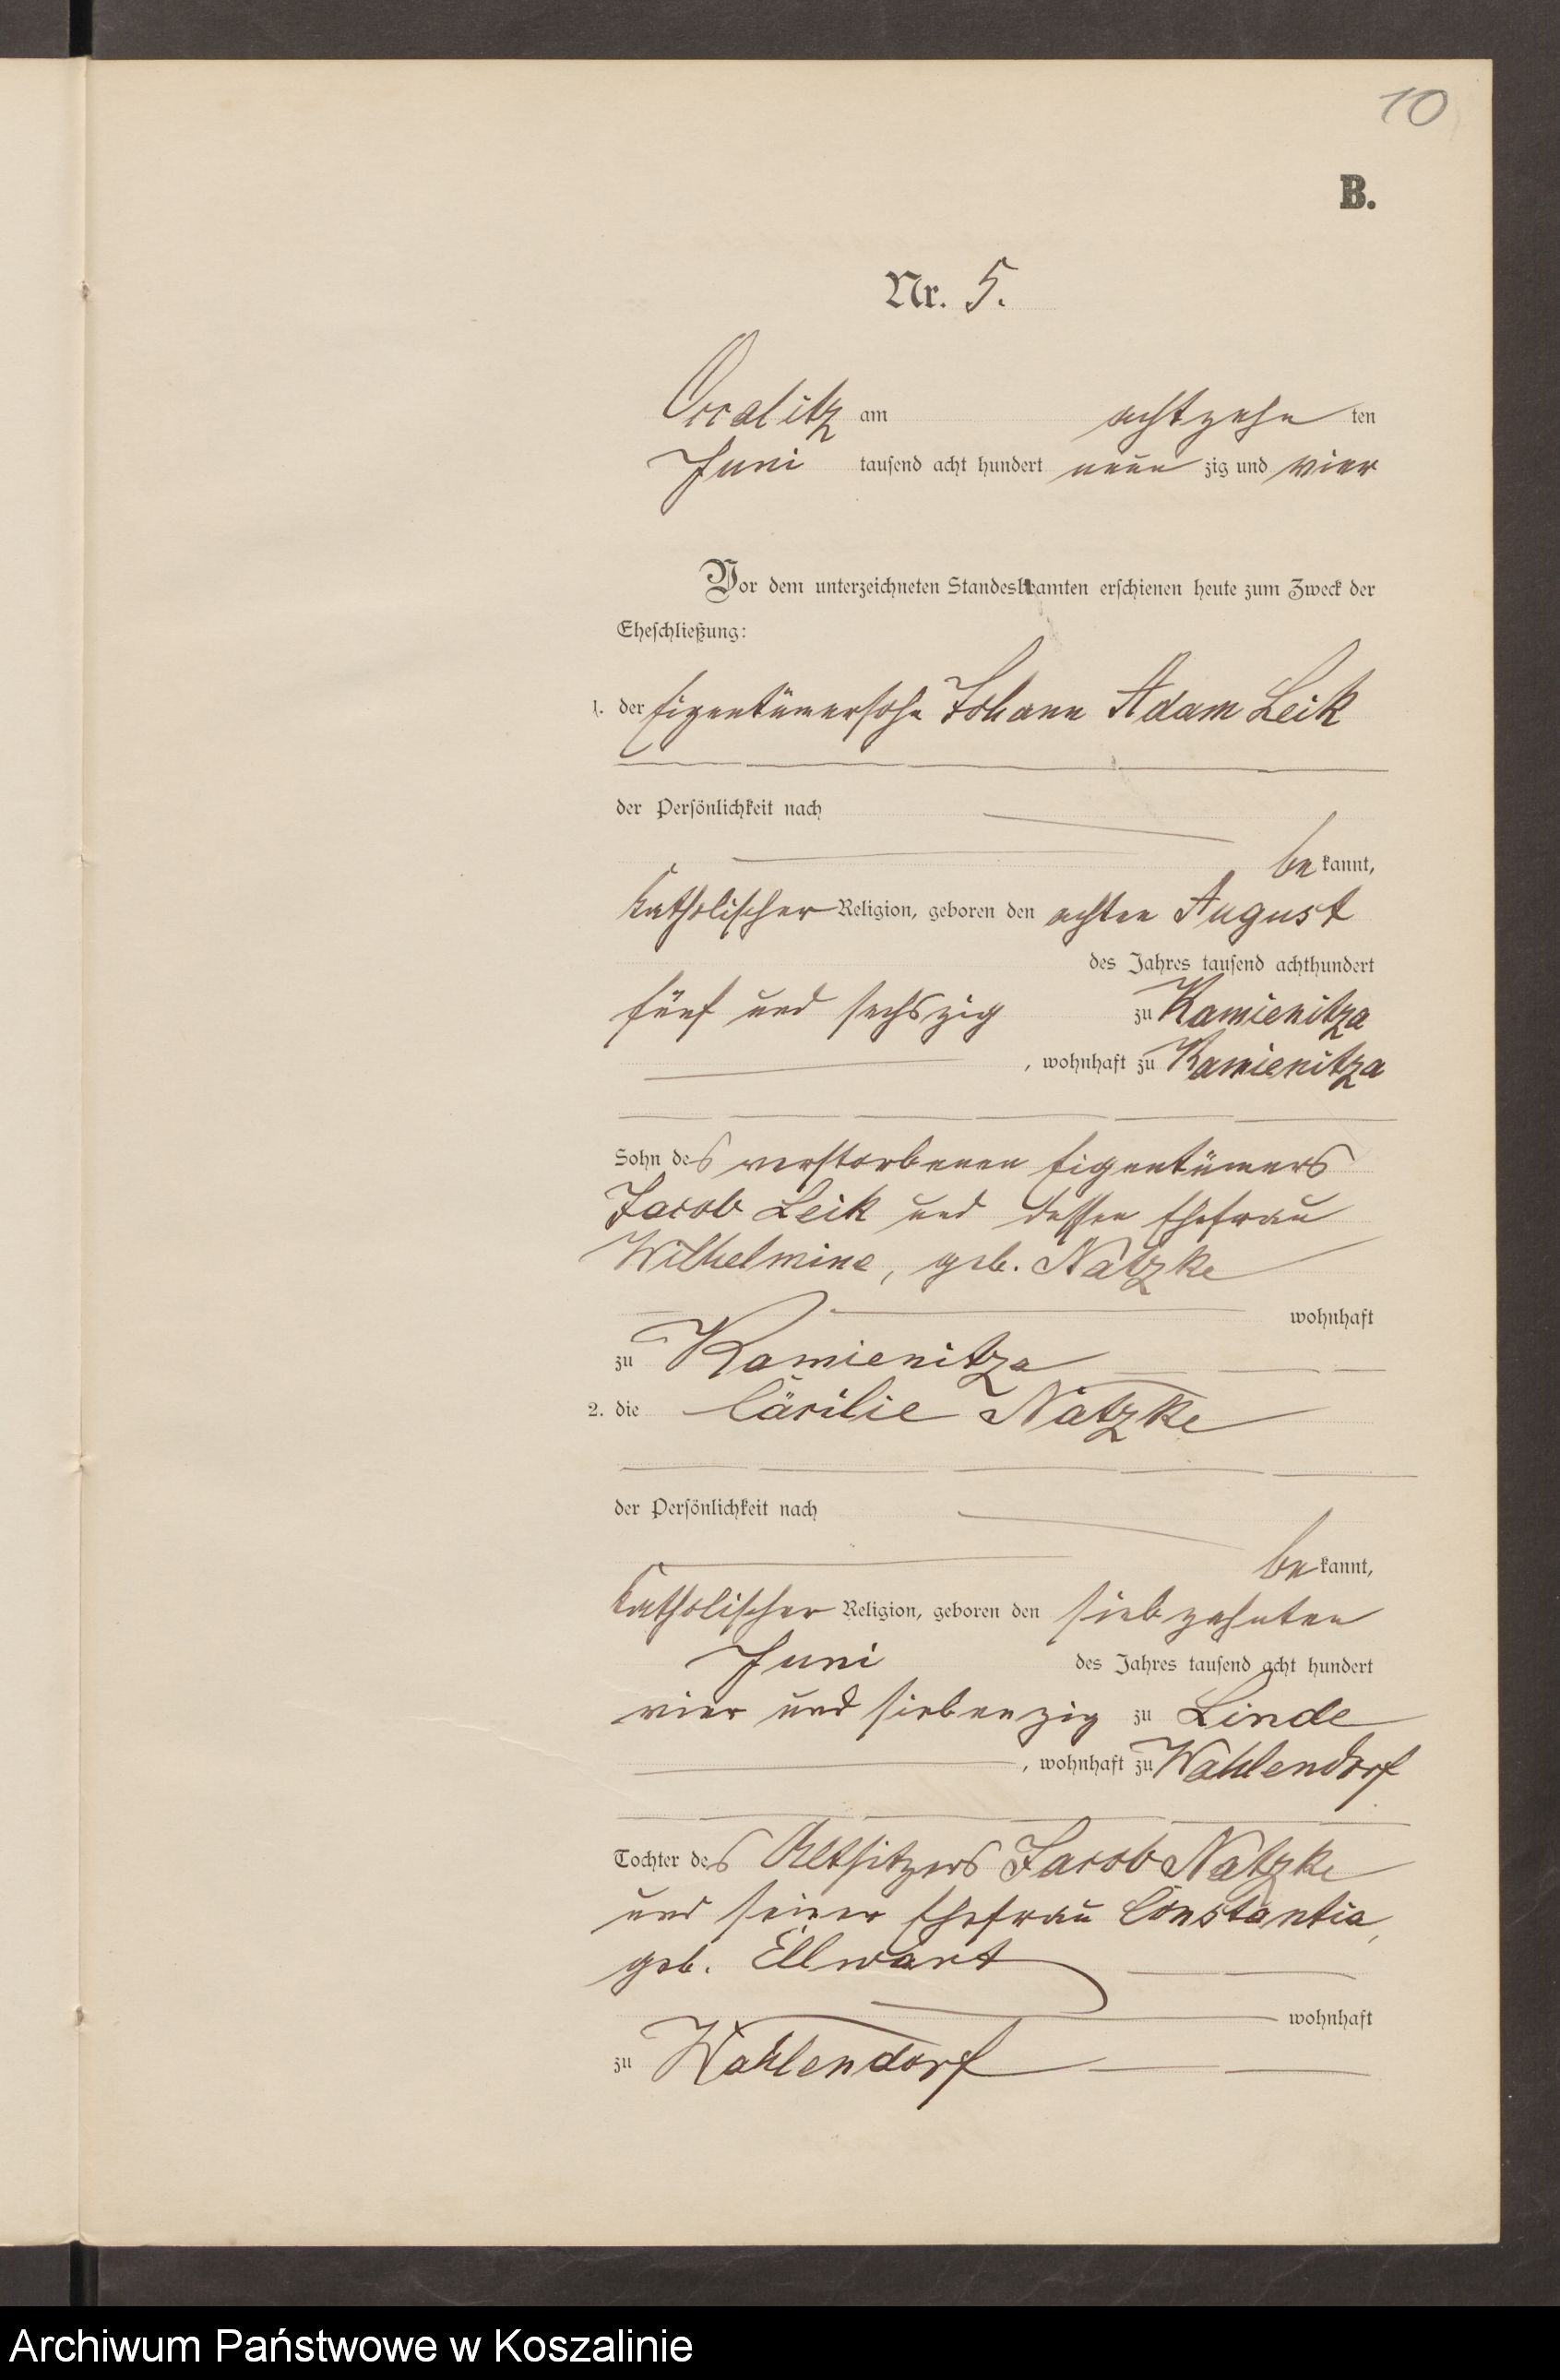 10
B.
Nr. 5.
Occalitz am achtzehn ten
Juni tausend acht hundert neun zig und vier
Vor dem unterzeichneten Standesbeamten erschienen heute zum Zweck der
Eheschließung:
1. der Eigentümersohn Johann Adam Leik
der Persönlichkeit nach
be kannt,
katholischer Religion, geboren den achten August
des Jahres tausend achthundert
fünf und sechszig zu Kamienitza
, wohnhaft zu Kamienitza
Sohn des verstorbenen Eigentümers
Jacob Leik und dessen Ehefrau
Wilhelmine, geb. Natzke
wohnhaft
zu Kamienitza
2. die Cäcilie Natzke
der Persönlichkeit nach
be kannt,
katholischer Religion, geboren den siebzehnten
Juni des Jahres tausend acht hundert
vier und siebenzig zu Linde
, wohnhaft zu Wahlendorf
Tochter des Altsitzers Jacob Natzke
und seiner Ehefrau Constantia,
geb. Ellwart
wohnhaft
zu Wahlendorf
Archiwum Państwowe w Koszalinie